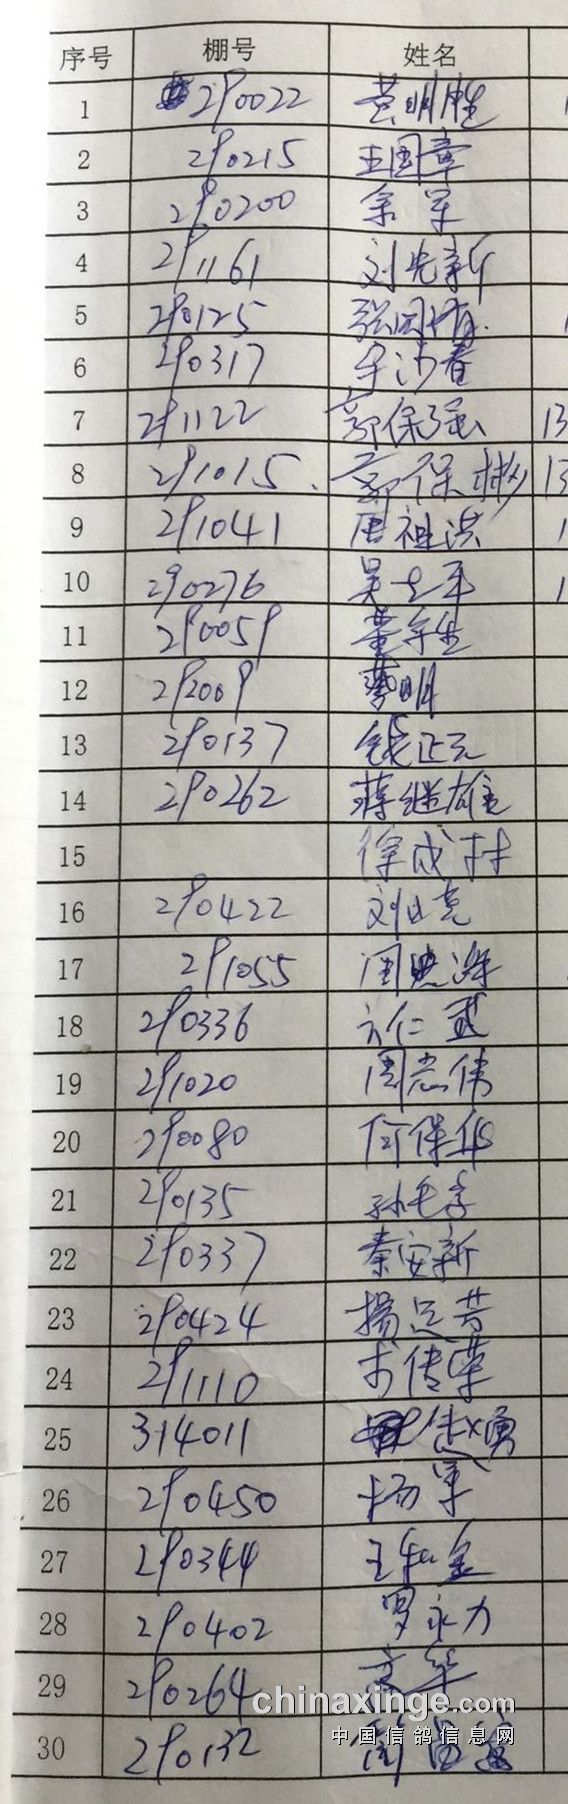 序号 棚号 姓名
1 290022 黄明胜
2 290215 王国章
3 290200 余军
4 291161 刘先新
5 290125 张国
6 290317 春
7 291122 郭保强 13
8 291015. 郭保彬 13
9 291041 周祖洪
10 290276 吴士平
11 290059 董生
12 292009 明
13 290137 钱正元
14 290262 蒋继雄
15 徐成林
16 290422 刘亮
17 291055 周
18 290336 方仁武
19 291020 周志伟
20 290080 何保华
21 290135 孙
22 290337 秦安新
23 290424 杨足芳
24 291110 传荣
25 314011 赵勇
26 290450 杨军
27 290344 王和金
28 290402 罗永力
29 290264 文华
30 290132
chinaxinge.com
中国信鸽信息网